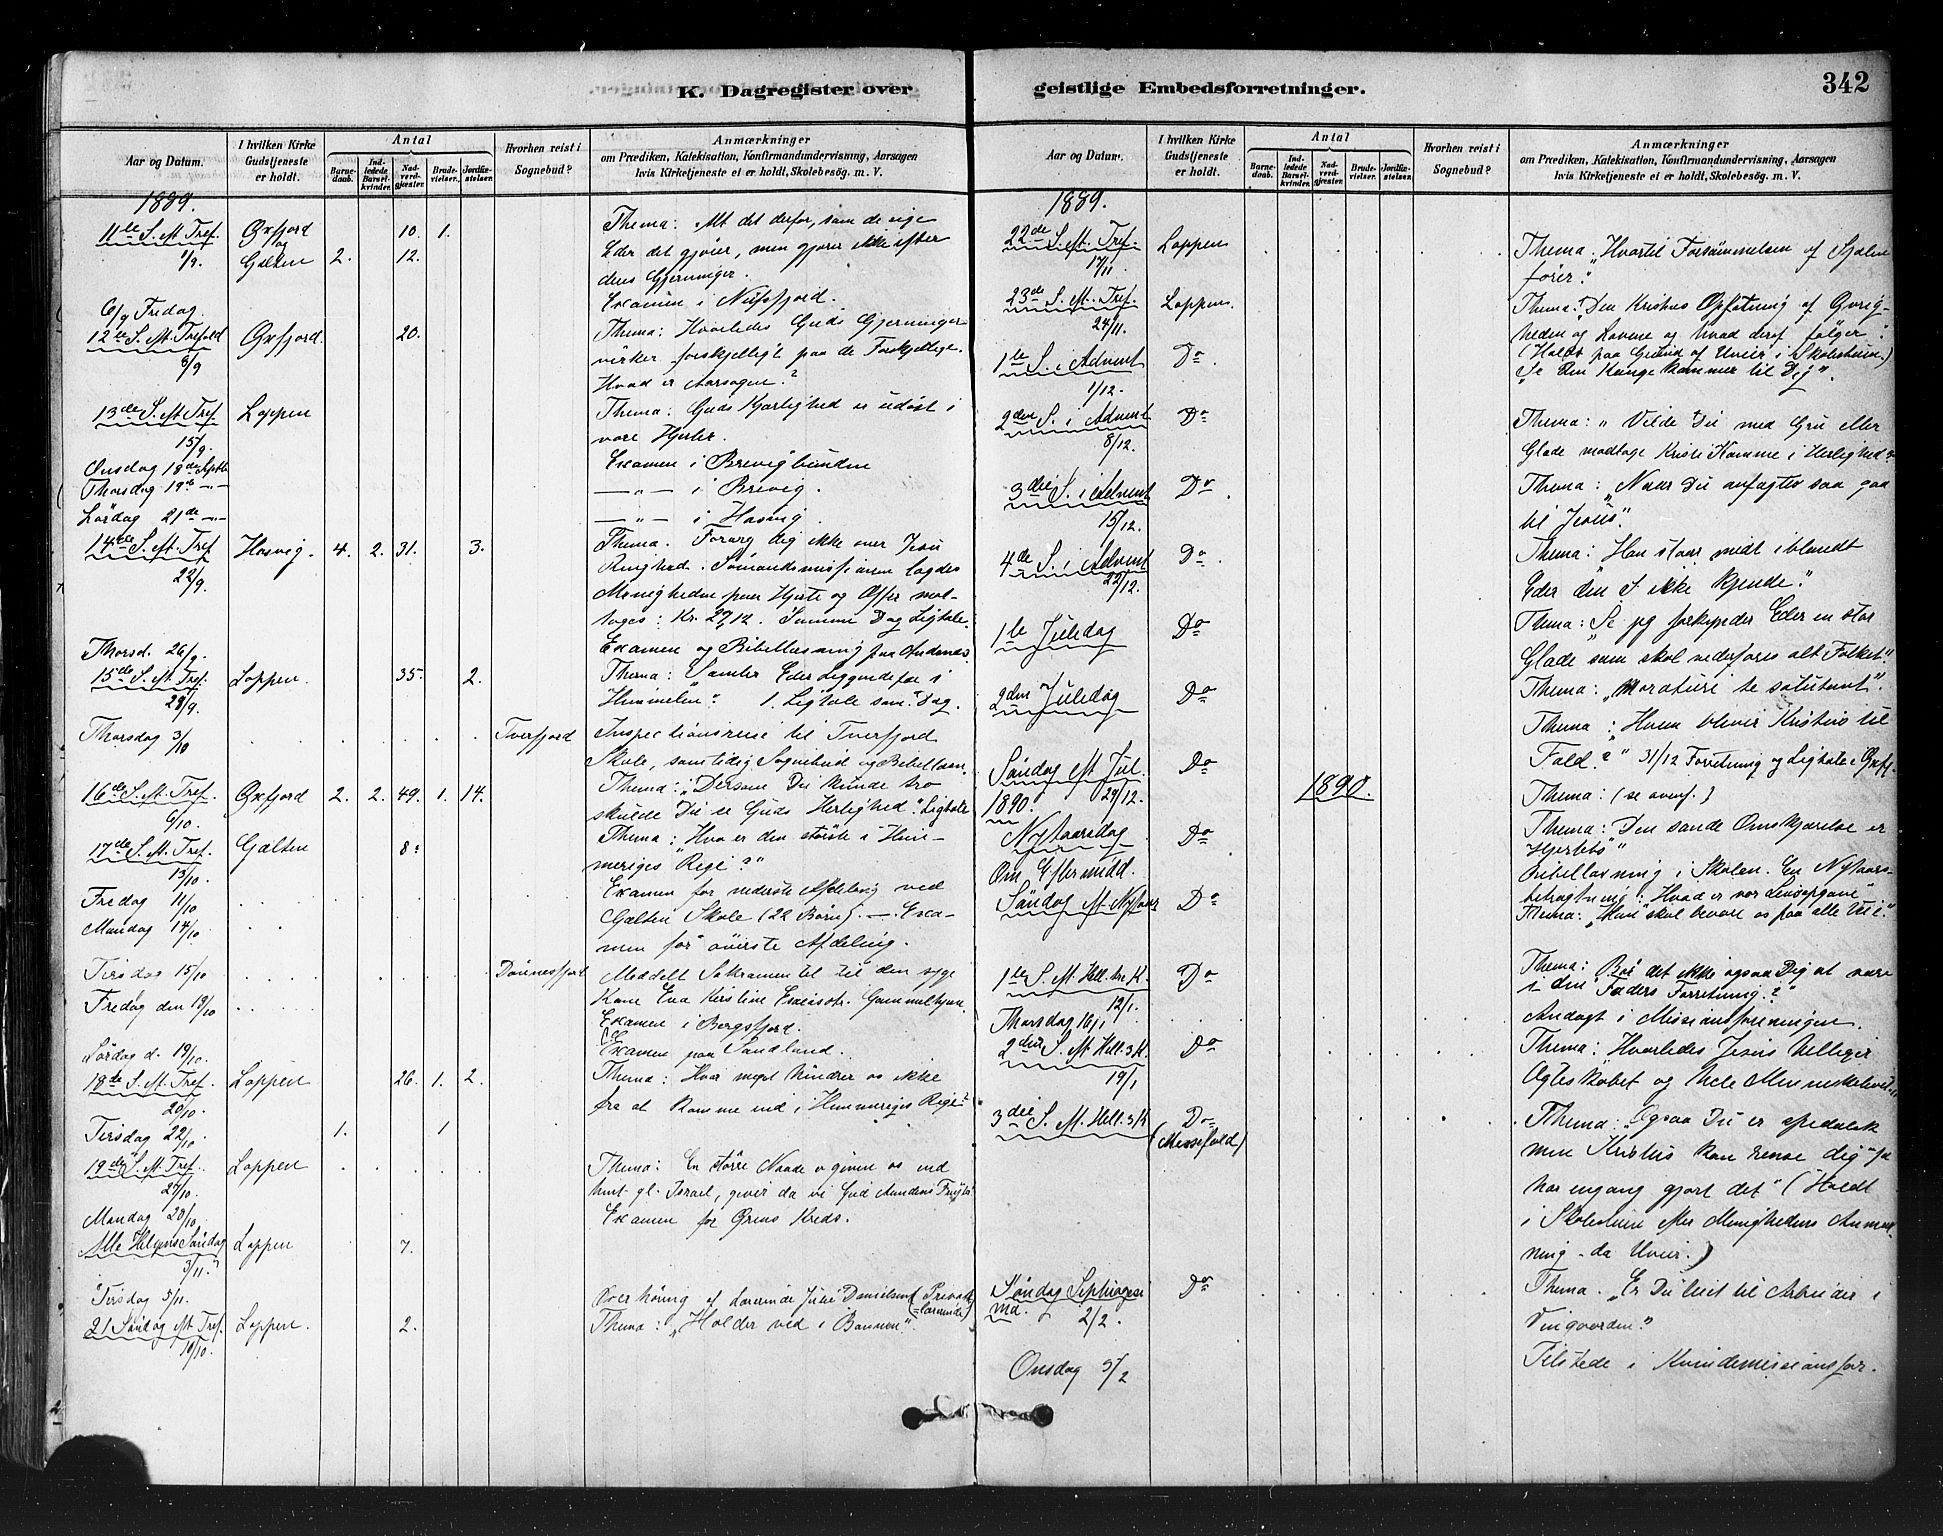 K. Dagregister over
geistlige Embedsforretninger.
342
Aar og Datum.
I hvilken Kirke Gudstjeneste er holdt.
Antal
Barnedaab.
Indledede Barselkvinder.
Nadverdgjester.
Brudevielser.
Jordfæstelser.
Hvorhen reist i Sognebud?
Anmærkninger
om Prædiken, Katekisation, Konfirmandundervisning, Aarsagen
hvis Kirketjeneste ei er holdt, Skolebesøg. m. V.
1889.
11te S. Aft. Tref. Øxfjord 10. 1. Thema: At det derfor, som de sige
1/9. og Galten 2. 12. Eder det gjører, men gjører ikke efter
deres Gjerninger.
6/9 Fredag Examen i Nufsfjord.
12te S. Aft. Trefold Øxfjord. 20. Thema: Hvorledes Guds Gjerninger
8/9 virker forskjelligt paa de Forskjellige.
Hvad er Aarsagen?
13de S. Aft. Tref. Loppen Thema: Guds Kjærlighed er udøst i
15/9. vore Hjerter.
Onsdag 18de Septb. Examen i Brevigbunden
Thorsdag 19de — „ — i Brevig.
Lørdag 21de — „ — i Hasvig.
14de S. Aft. Tref. Hasvig. 4. 2. 31. 3. Thema. Forarg dig ikke over Jesu
22/9. Ringhed. Sømandsmissionen lagdes
Menigheden paa Hjerte og Offer mod-
toges: Kr. 27,12. Samme Dag Ligtale.
Thorsd. 26/9. Examen og Bibellæsning paa
15de S. Aft. Tref. Loppen. 35. 2. Thema: Samler Eder Liggendefæ i
29/9. Himmelen". 1. Ligtale sam. Dag.
Thorsdag 3/10 Tverfjord Inspectionsreise til Tverfjord
Skole, samtidig Sognebud og Bibellæsn.
16de S. Aft. Tref. Øxfjord 2. 2. 49. 1. 14. Thema: „Dersom Du kunde tro
6/10. skulde Du se Guds Herlighed". Ligtale
17de S. Aft. Tref. Galten 8. Thema: Hvo er den største i Him-
13/10. meriges Rige?"
Fredag 11/10 Examen for nederste Afdeling ved
Mandag 14/10 Galten Skole (22 Børn). — Exa-
men for øverste Afdeling.
Tirsdag 15/10 Dønnesfjord Meddelt Sakramentet til den syge
Fredag den 18/10 Kone Eva Kirstine
Examen i Bergsfjord.
Lørdag d. 19/10. Examen paa Sandland.
18de S. Aft. Tref. Loppen 26. 1. 2. Thema: Hvor meget hindrer os ikke
20/10. fra at komme ind i Himmeriges Rige?
Tirsdag 22/10 1. 1
19de S. Aft. Tref. Loppen Thema: En større Naade er given os end
27/10. hint gl. Israel, giver da vi Guds Aandens Frugter
Mandag 28/10 Examen for Grens Kreds.
Alle Helgens Søndag Loppen 7.
3/11.
Tirsdag 5/11. Overhøring af Lærerinde Julie Danielsen (Privat-
lærerinde)
21 Søndag Aft. Tref. Loppen. 2. Thema: „Holder ved i Bønnen."
10/10.
Aar og Datum.
I hvilken Kirke Gudstjeneste er holdt.
Antal
Barnedaab.
Indledede Barselkvinder.
Nadverdgjester.
Brudevielser.
Jordfæstelser.
Hvorhen reist i Sognebud?
Anmærkninger
om Prædiken, Katekisation, Konfirmandundervisning, Aarsagen
hvis Kirketjeneste ei er holdt, Skolebesøg. m. V.
1889.
22de S. Aft. Tref. Loppen Thema: „Hvortil Forsømmelsen af Sjælen
17/11. fører."
23de S. Aft. Tref. Loppen. Thema: Den Kristnes Opfatning af Øvrig-
24/11. heden og Lovene og hvad deraf følger."
(Holdt paa Grund af Uveir i Skolestuen.)
1te S. i Advent Do „Se din Konge kommer til Dig".
1/12.
2den S. i Advent Do Thema: „Vilde Du med Gru eller
8/12. Glæde modtage Kristi Komme i Herlighed?
3die S. i Advent Do Thema: „Naar Du anfægtes saa gaa
15/12. til Jesus".
4de S. i Advent Do Thema: Han staar midt iblandt
22/12. Eder den I ikke kjende."
1te Juledag Do Thema: Se jeg forkynder Eder en stor
Glæde som skal vederfares alt Folket".
2den Juledag Do Thema: „Morituri te salutant".
Thema: Hvem bliver Kristus til
Fald?" 31/12 Forretning og Ligtale i Øxfj.
Søndag eft Jul. Do Thema: (se ovenf.)
29/12.
1890.
1890.
Nytaarsdag Do Thema: „Den sande Omskjærelse er
Hjertets"
Om Eftermidd. Bibellæsning i Skolen. En Nytaars-
betragtning: Hvad er vor Livsopgave"
Søndag Aft. Nytaar Do Thema: „Han skal bevare os paa alle Veie."
1te S. Aft. Hell. tre K. Do Thema: Bør det ikke ogsaa Dig at være
12/1. i din Faders Forretning?"
Thorsdag 16/1 Andagt i Missionsforeningen.
2den S. Aft. Hell. 3 K. Do Thema: Hvorledes Jesus helliger
19/1 Ægteskabet og hele Menneskelivet
3die S. Aft. Hell. 3 K Do Thema: „Ogsaa Du er spedalsk
(Messefald) men Kristus kan rense dig - ja
har engang gjort det" (Holdt
i Skolestuen efter Menighedens Anmod-
ning - da Uveir.)
Søndag Septuagesi- Do Thema. „Er Du leiet til Arbeider i
ma. 2/2. Vingaarden?"
Onsdag 5/2 Tilstede i Kvindemissionsfor.